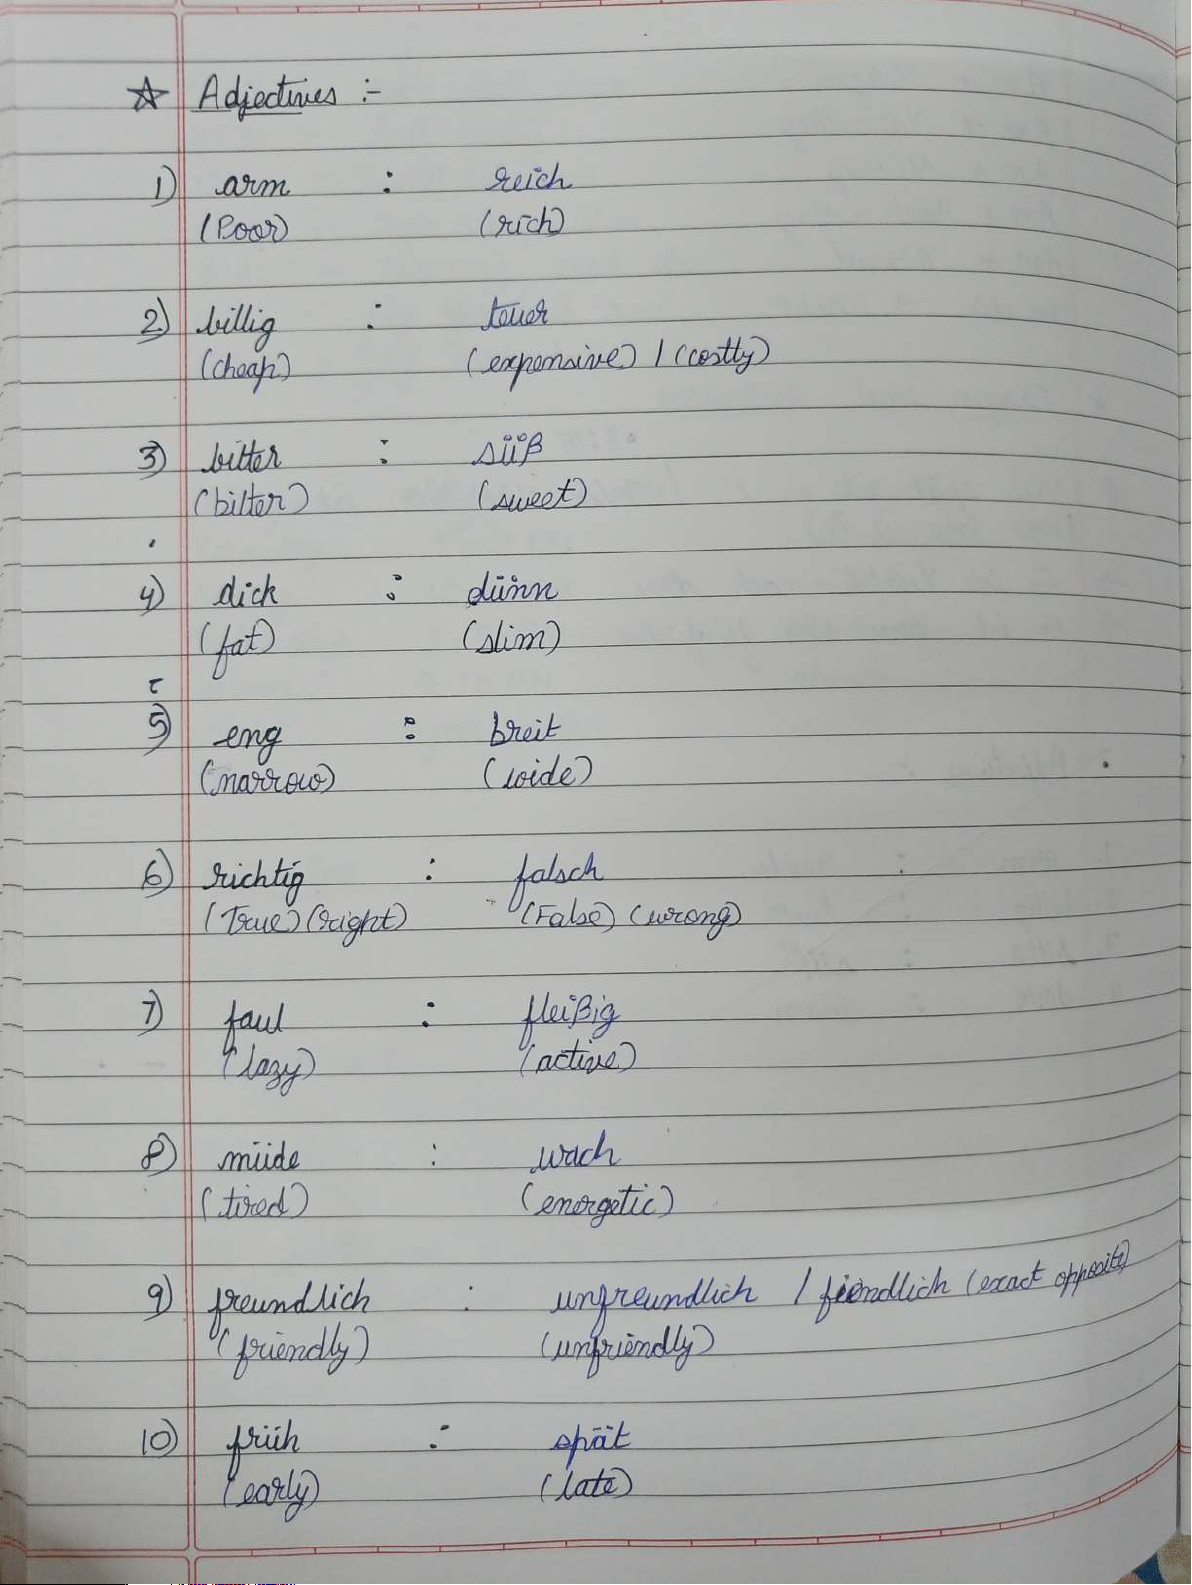 ☆ Adjectives :-
1) arm : reich
(Poor) (rich)
2) billig : teuer
(cheap) (expensive) / (costly)
3) bitter : süß
(bitter) (sweet)
4) dick : dünn
(fat) (slim)
5) eng : breit
(narrow) (wide)
6) richtig : falsch
(True) (right) (False) (wrong)
7) faul : fleißig
(lazy) (active)
8) müde : wach
(tired) (energetic)
9) freundlich : unfreundlich / fiendlich (exact opposite)
(friendly) (unfriendly)
10) früh : spät
(early) (late)